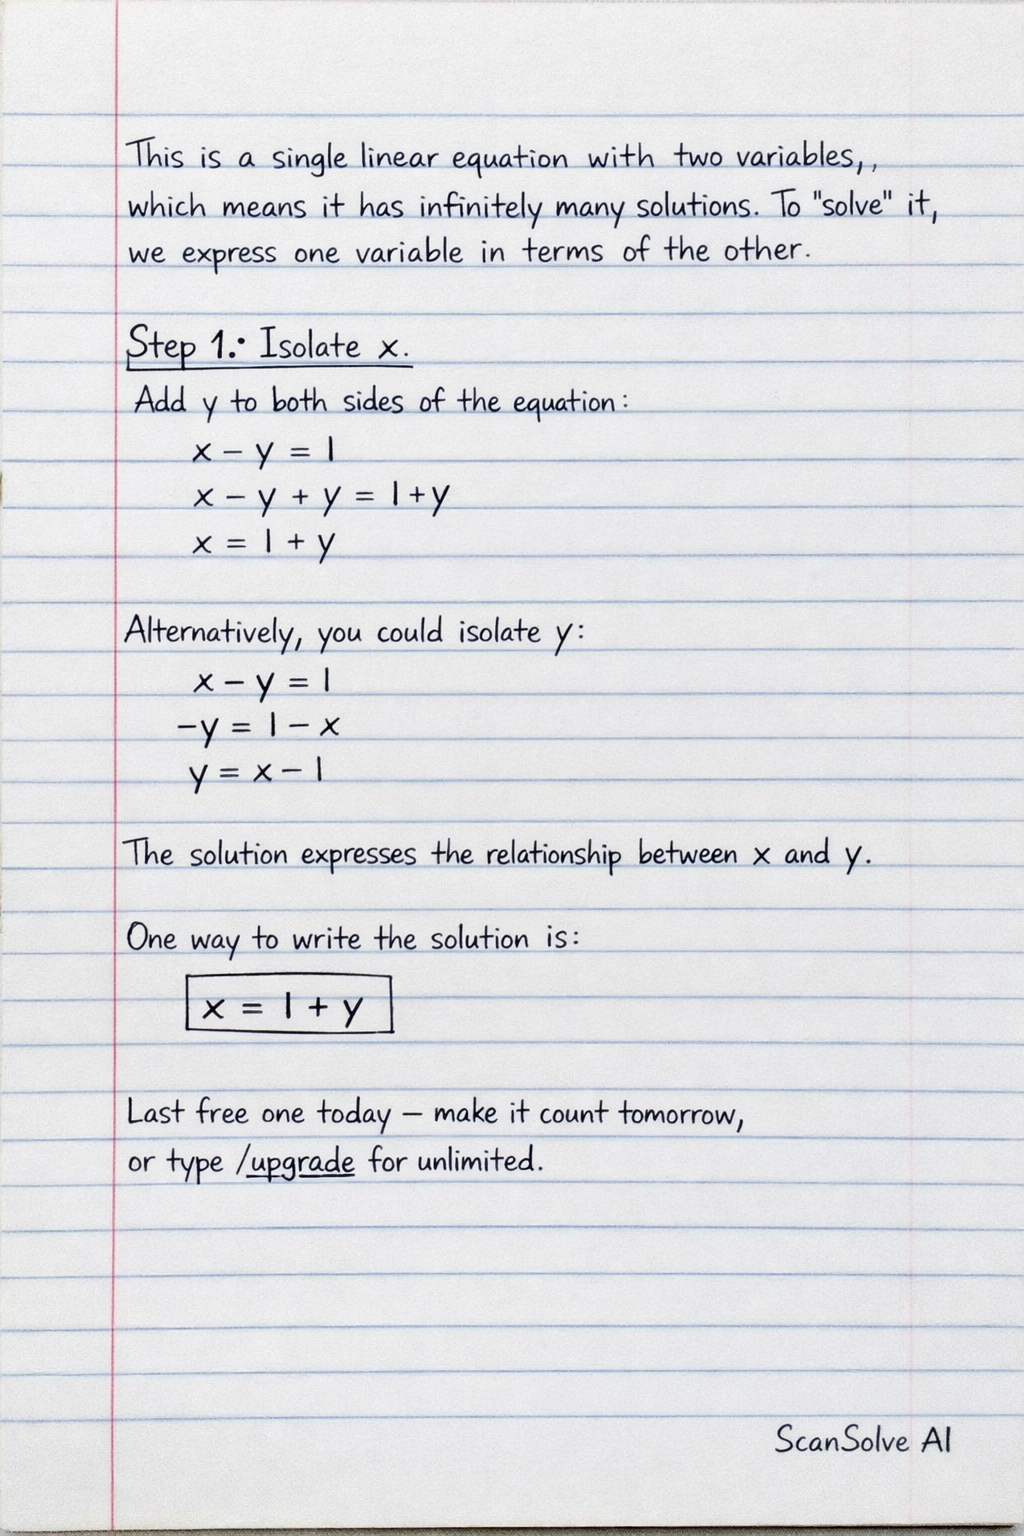 This is a single linear equation with two variables,,
which means it has infinitely many solutions. To "solve" it,
we express one variable in terms of the other.
Step 1.· Isolate x.
Add y to both sides of the equation:
x - y = 1
x - y + y = 1+y
x = 1 + y
Alternatively, you could isolate y:
x - y = 1
-y = 1 - x
y = x - 1
The solution expresses the relationship between x and y.
One way to write the solution is:
x = 1 + y
Last free one today — make it count tomorrow,
or type /upgrade for unlimited.
ScanSolve AI